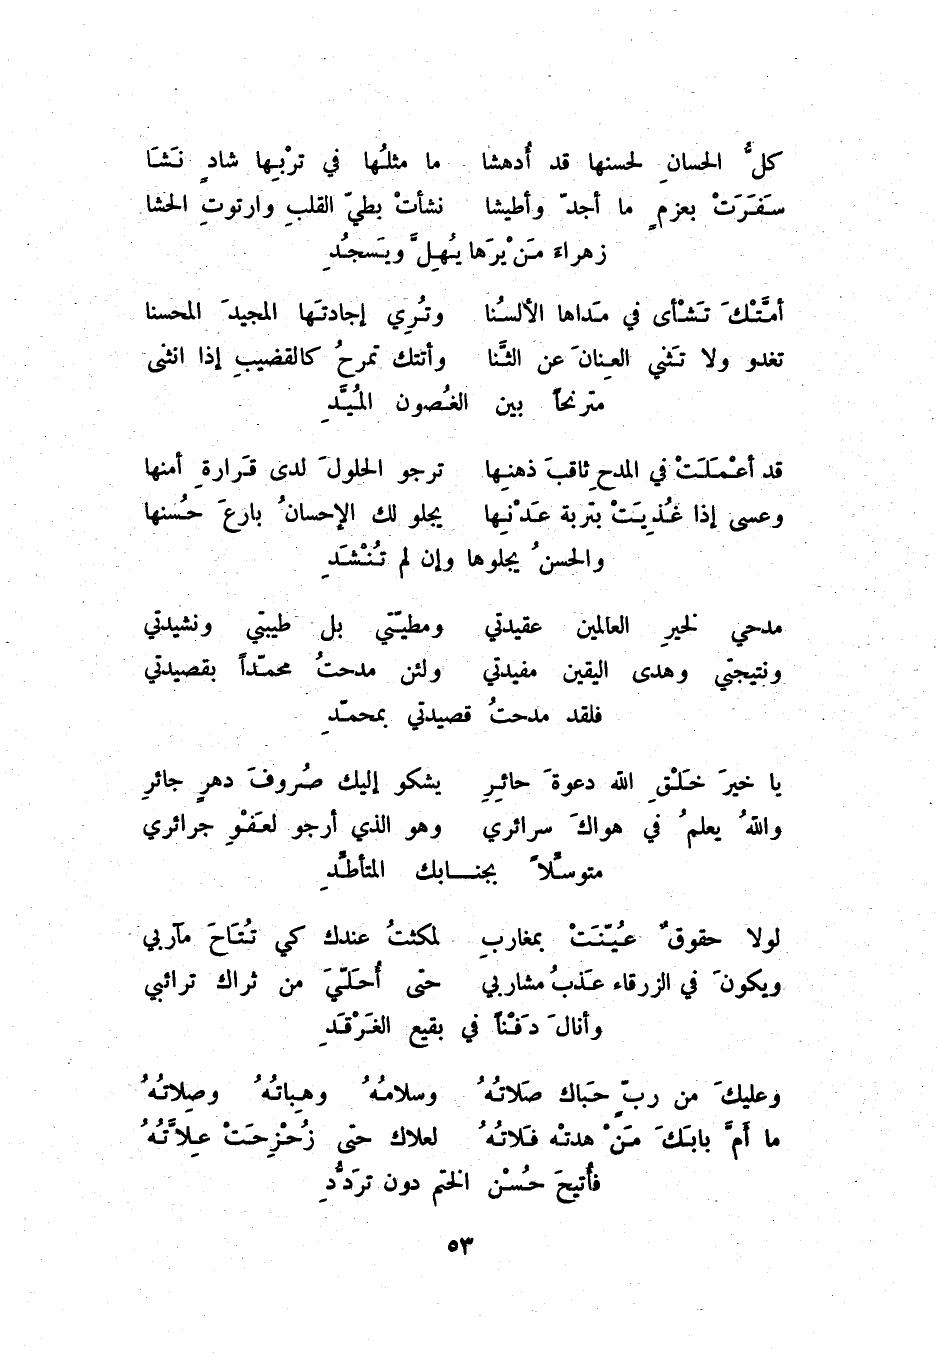 كلُّ الحسانِ لحسنها قد أُدهشا ما مثلُها في تِرْبِها شادٍ نَشَا
سَفَرَتْ بعزمٍ ما أجدّ وأطيشا نشأتْ بطيّ القلبِ وارتوتِ الحشا
زهراءَ مَنْ يرَها يُهِلَّ ويَسجُدِ
أمَّتْكَ تَشْأى في مَداها الألسُنا وتُرِي إجادتَها المجيدَ المحسنا
تغدو ولا تَثني العِنانَ عن الثَّنا وأتتك تمرحُ كالقضيبِ إذا انثنى
مترنحاً بين الغُصون المُيَّدِ
قد أعْمَلَتْ في المدحِ ثاقبَ ذهنِها ترجو الحلولَ لدى قَرارةِ أمنها
وعسى إذا غُذِيَتْ بتربة عَدْنِها يجلو لك الإحسانُ بارعَ حُسنها
والحسنُ يجلوها وإن لم تُنْشَدِ
مدحي لخيرِ العالمين عقيدتي ومطيّتي بل طيبتي ونشيدتي
ونتيجتي وهدى اليقين مفيدتي ولئن مدحتُ محمّداً بقصيدتي
فلقد مدحتُ قصيدتي بمحمّدِ
يا خيرَ خَلْقِ الله دعوةَ حائِرِ يشكو إليك صُروفَ دهرٍ جائرِ
واللهُ يعلمُ في هواكَ سرائري وهو الذي أرجو لعَفْوِ جرائري
متوسّلاً بجنابك المتأطَّدِ
لولا حقوقٌ عُيّنَتْ بمغاربِ لمكثتُ عندك كي تُتَاحَ مآربي
ويكونَ في الزرقاء عَذبُ مشاربي حتى أُحَلّيَ من ثراك ترائبي
وأنالَ دَفْناً في بقيع الغَرْقَدِ
وعليكَ من ربّ حَباك صَلاتُهُ وسلامُهُ وهِباتُهُ وصِلاتُهُ
ما أَمَّ بابَكَ مَنْ هدته فَلاتُهُ لعلاك حتى زُحْزِحَتْ عِلاَّتُهُ
فأُتيحَ حُسْن الختم دون تردُّدِ
٥٣